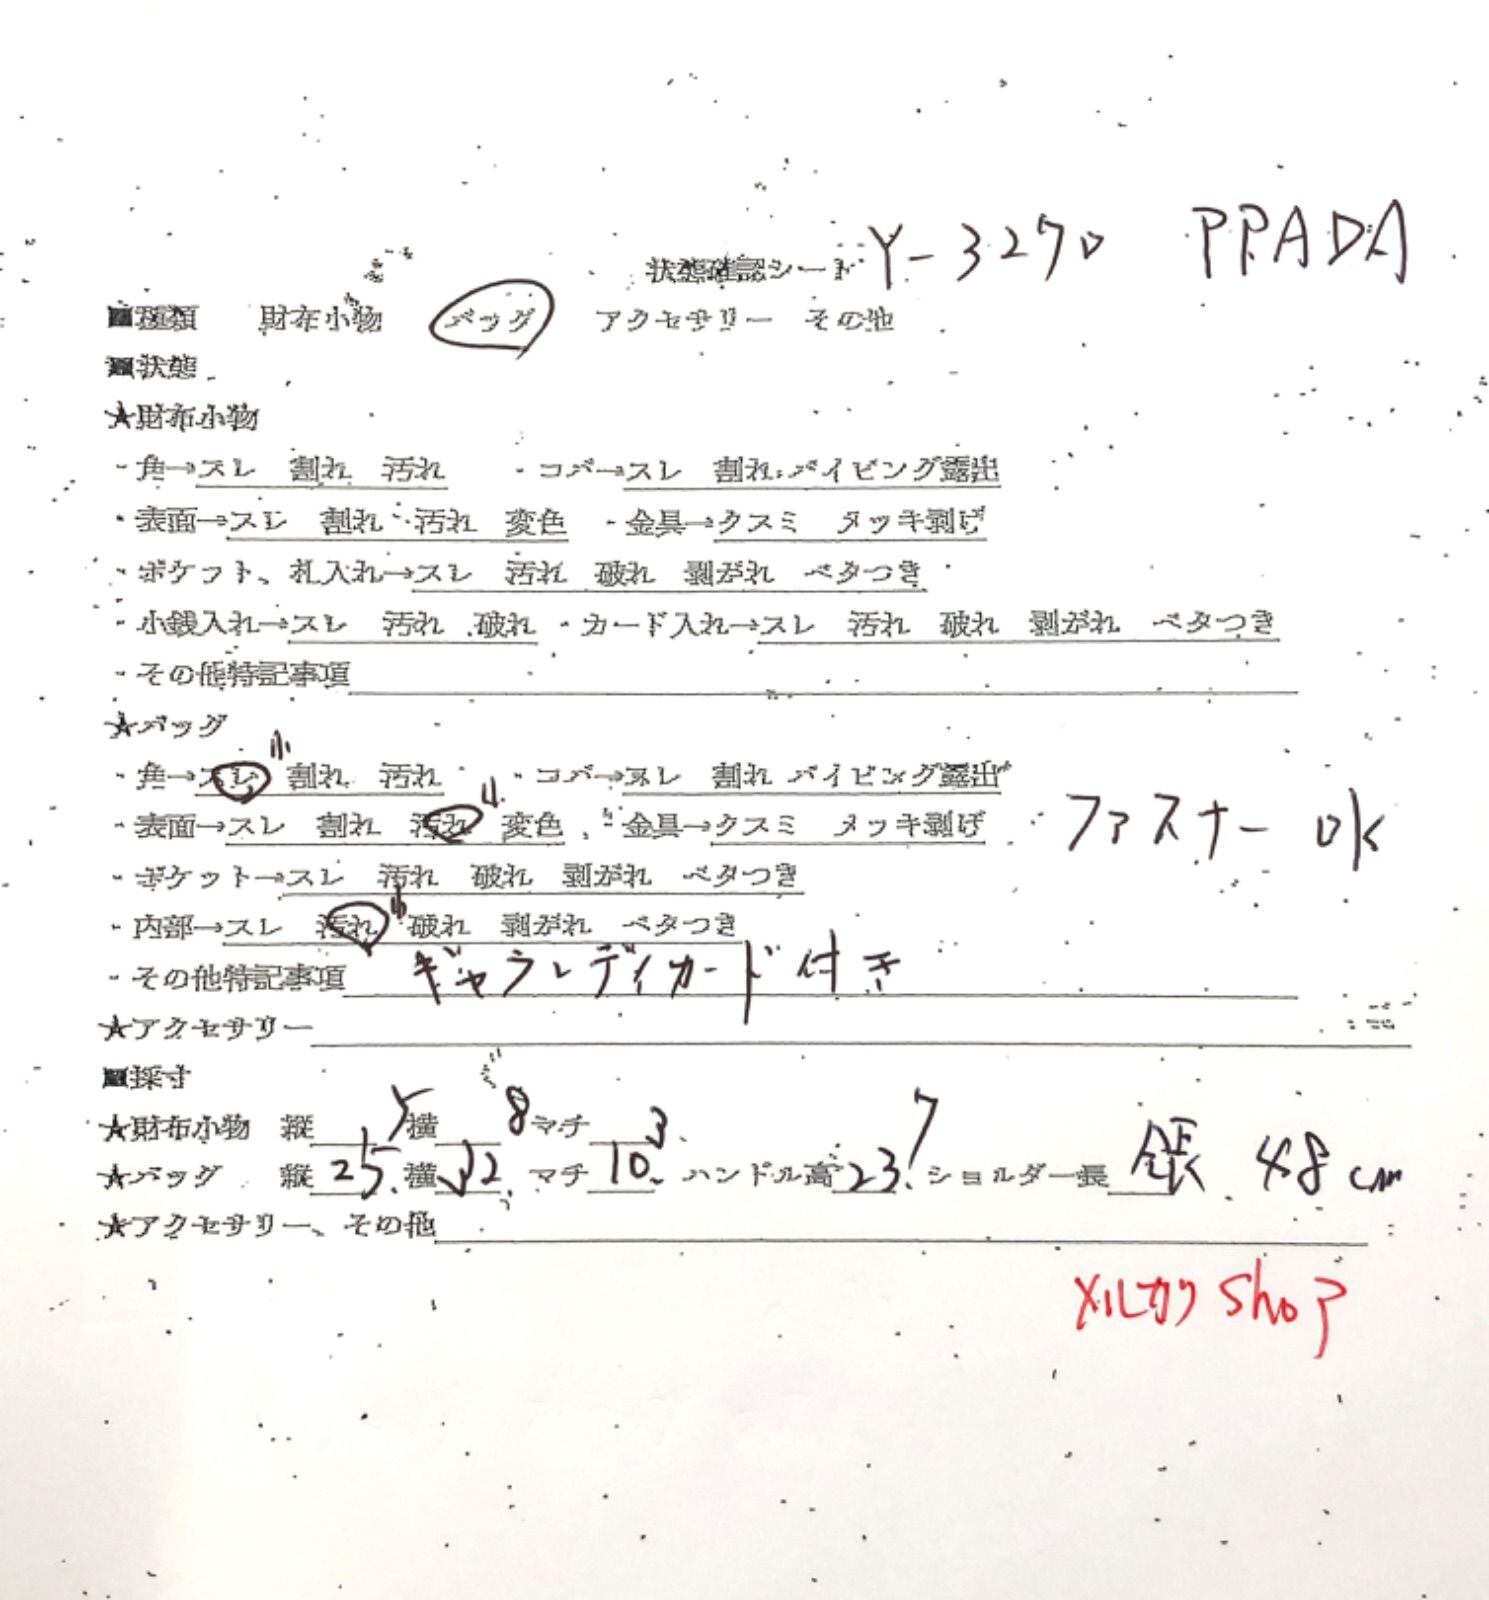 状態確認シート Y-3270 PPADA
■種類 財布小物 バッグ アクセサリー その他
■状態
★財布小物
・角→スレ 割れ 汚れ ・コバ→スレ 割れ パイピング露出
・表面→スレ 割れ 汚れ 変色 ・金具→クスミ メッキ剥げ
・ポケット、札入れ→スレ 汚れ 破れ 剥がれ ベタつき
・小銭入れ→スレ 汚れ 破れ ・カード入れ→スレ 汚れ 破れ 剥がれ ベタつき
・その他特記事項
★バッグ
・角→スレ 小 割れ 汚れ ・コバ→スレ 割れ パイピング露出
・表面→スレ 割れ 汚れ 小 変色 ・金具→クスミ メッキ剥げ ファスナー OK
・ポケット→スレ 汚れ 破れ 剥がれ ベタつき
・内部→スレ 汚れ 小 破れ 剥がれ ベタつき
・その他特記事項 ギャランティカード付き
★アクセサリー
■採寸
★財布小物 縦 5 横 8 マチ 3 7
★バッグ 縦 25. 横 32. マチ 10. ハンドル高 23. ショルダー長 48cm
★アクセサリー、その他
メルカリ Shop